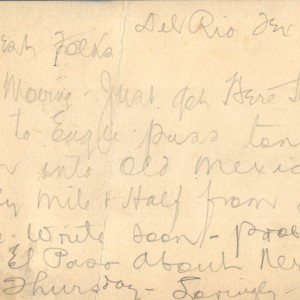 Del Rio Tex
Folks
Moving - Just got Here
to Eagle pass
into Old Mexic
mile + Half from
Write soon - prob
El Paso About
Thursday - Lovingly -